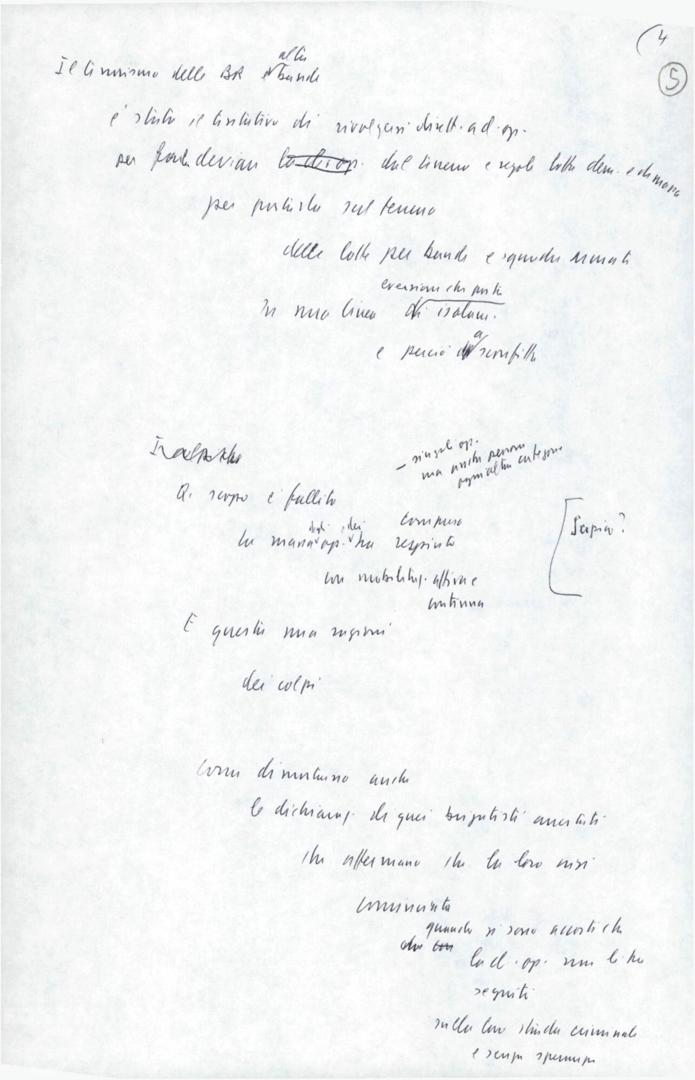 (4
5
Il terrorismo delle BR e altre bande
è stato il tentativo di rivolgersi dirett. a cl. op.
per deviarla la cl. op. dal terreno e regole lotta dem. e di massa
per portarla sul terreno
delle lotte per bande e squadre armate
eversione che porta
in una linea di isolam.
e perciò a sconfitta
- singoli op.
ma anche persone
altre categorie
Q. scopo è fallito
la massa degli op. ha respinto
con mobilitaz. attiva e
continua
[Senzani?
E questa una ragioni
dei colpi
come dimostrano anche
le dichiaraz. di quei brigatisti arrestati
che affermano che la loro crisi
cominciata
quando si sono accorti che
la cl. op. non li ha
seguiti
sulla loro strada criminale
e senza speranza